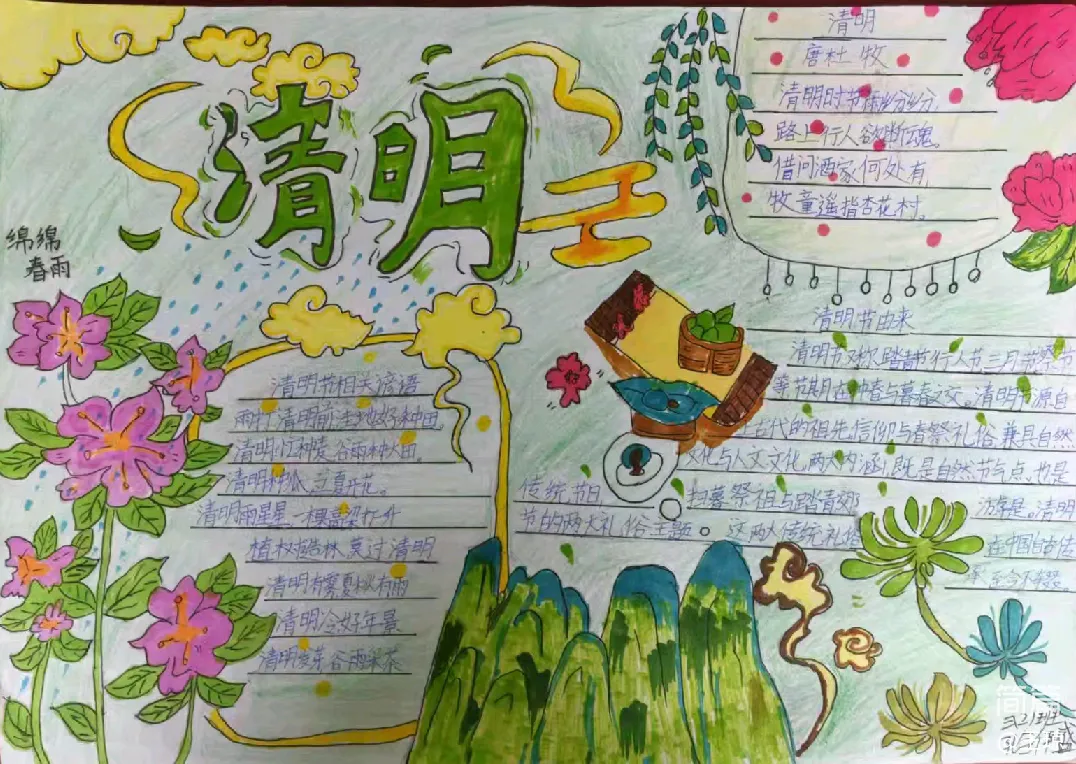 清明
绵绵
春雨
清明
唐 杜牧
清明时节雨纷纷
路上行人欲断魂。
借问酒家何处有
牧童遥指杏花村。
清明节相关谚语
雨打清明前 洼地好种田
清明忙种麦 谷雨种大田。
清明种瓜 立夏开花。
清明雨星星 一棵高粱打一升
植树造林 莫过清明
清明有雾 夏秋有雨
清明冷 好年景
清明发芽 谷雨采茶
清明节由来
清明节又称踏青节 行人节 三月节 祭
季节期在仲春与暮春之交。清明节源自
古代的祖先信仰与春祭礼俗 兼具自然
文化与人文文化两大内涵 既是自然节气点、也是
传统节日 扫墓祭祖与踏青郊游 清明
节的两大礼俗主题。这两大传统礼俗 在中国自古传
承 至今不
三2班
简篇